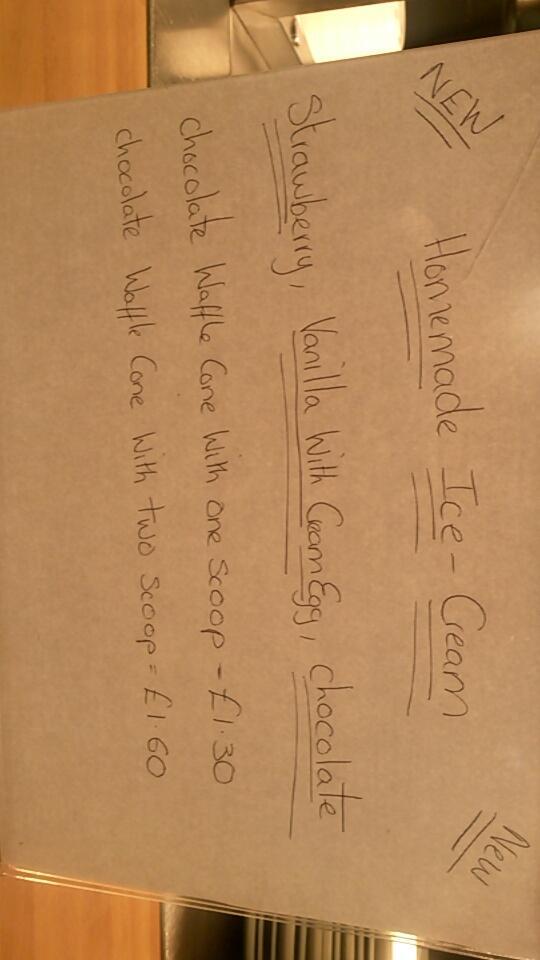 NEW
New
Homemade Ice-Cream
Strawberry, Vanilla With CreamEgg, chocolate
chocolate Waffle Cone With one Scoop - £1.30
chocolate Waffle Cone With two Scoop = £1.60